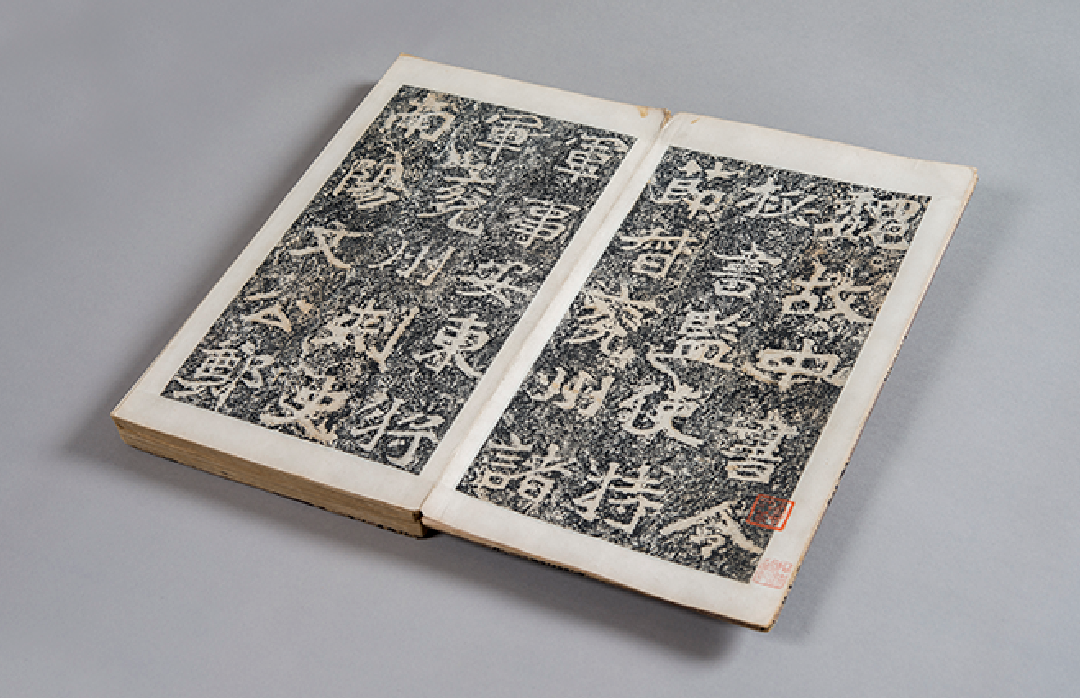 魏故中書令
秘書監使持
節督兖州諸
軍事安東将
軍兖州刺史
南陽文公鄭